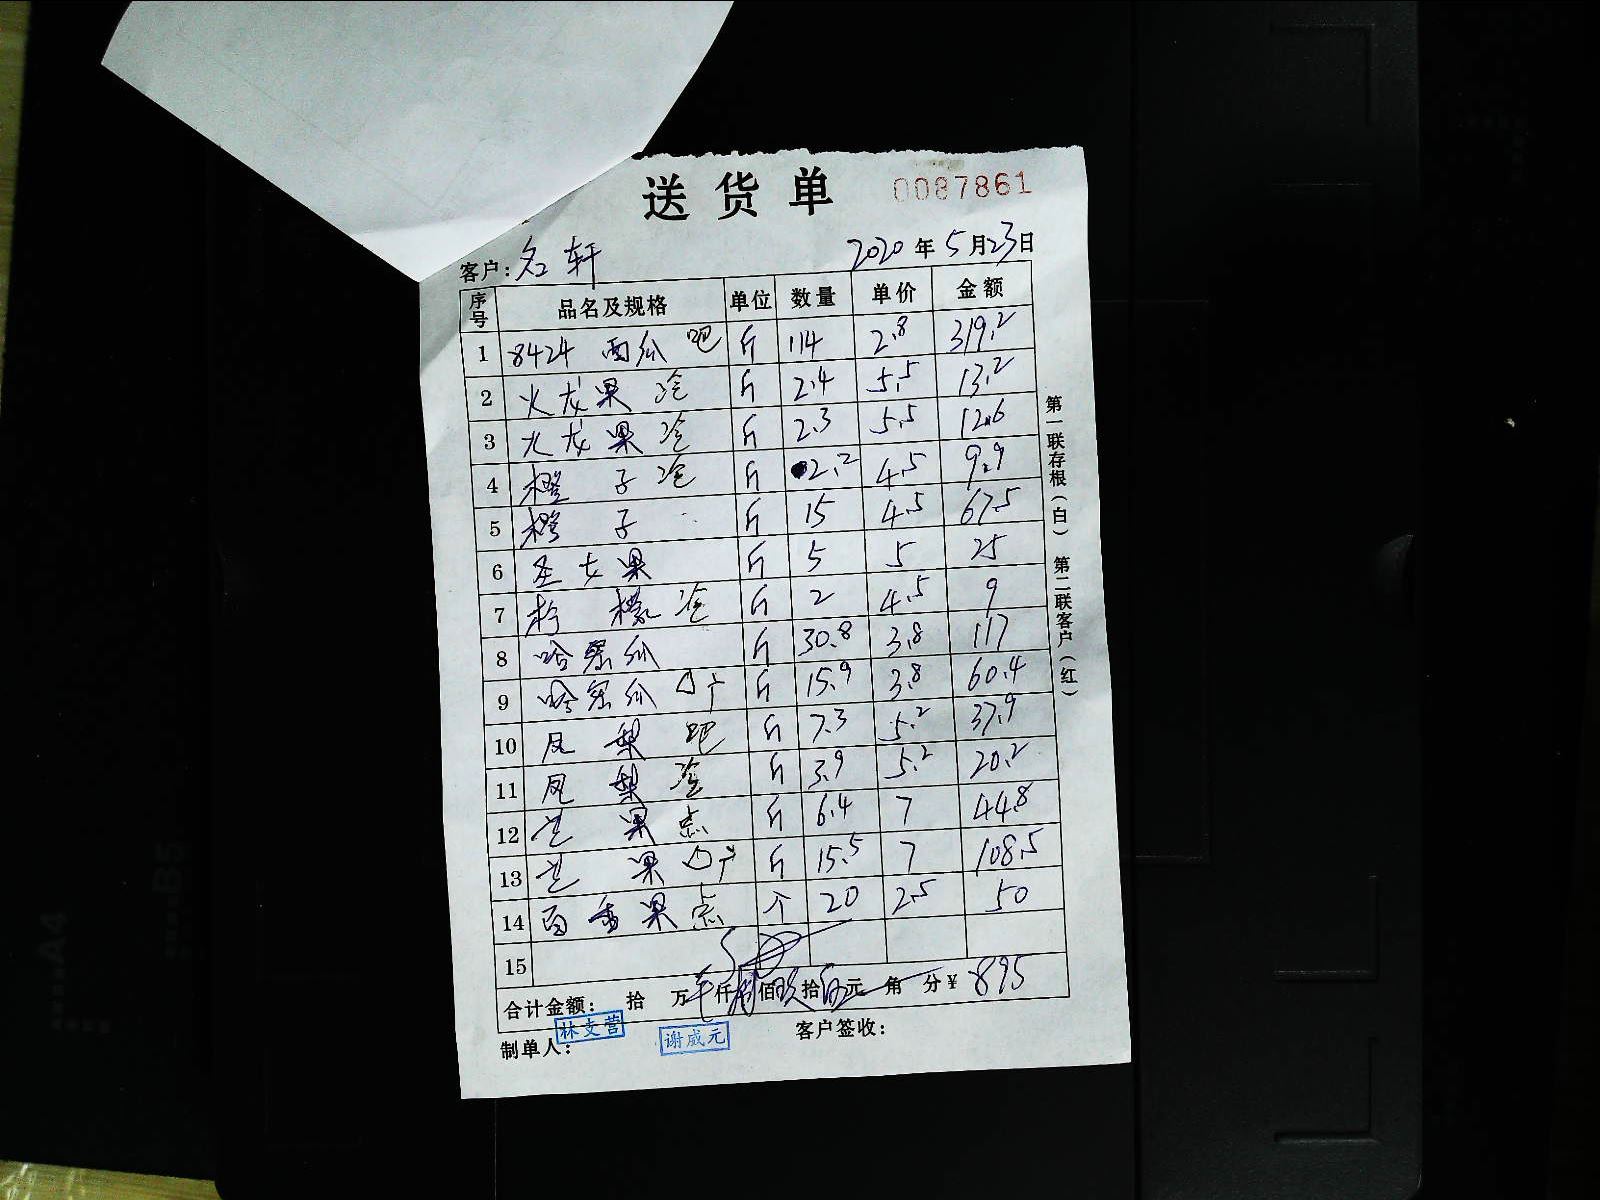 送货单 0087861
客户: 名轩 2020年5月23日
序号 品名及规格 单位 数量 单价 金额
1 8424 西瓜 吧 斤 114 2.8 319.2
2 火龙果 冷 斤 2.4 5.5 13.2
3 火龙果 冷 斤 2.3 5.5 12.6
4 橙子 冷 斤 2.2 4.5 9.9
5 橙子 斤 15 4.5 67.5
6 圣女果 斤 5 5 25
7 柠檬 冷 斤 2 4.5 9
8 哈密瓜 斤 30.8 3.8 117
9 哈密瓜 斤 15.9 3.8 60.4
10 凤梨 吧 斤 7.3 5.2 37.9
11 凤梨 冷 斤 3.9 5.2 20.2
12 芒果 点 斤 6.4 7 44.8
13 芒果 斤 15.5 7 108.5
14 百香果 点 个 20 2.5 50
15
合计金额: 拾 万 仟 捌佰玖拾伍元 角 分 ¥895
制单人: 林支营 谢威元 客户签收:
第一联存根(白) 第二联客户(红)
A4
B5